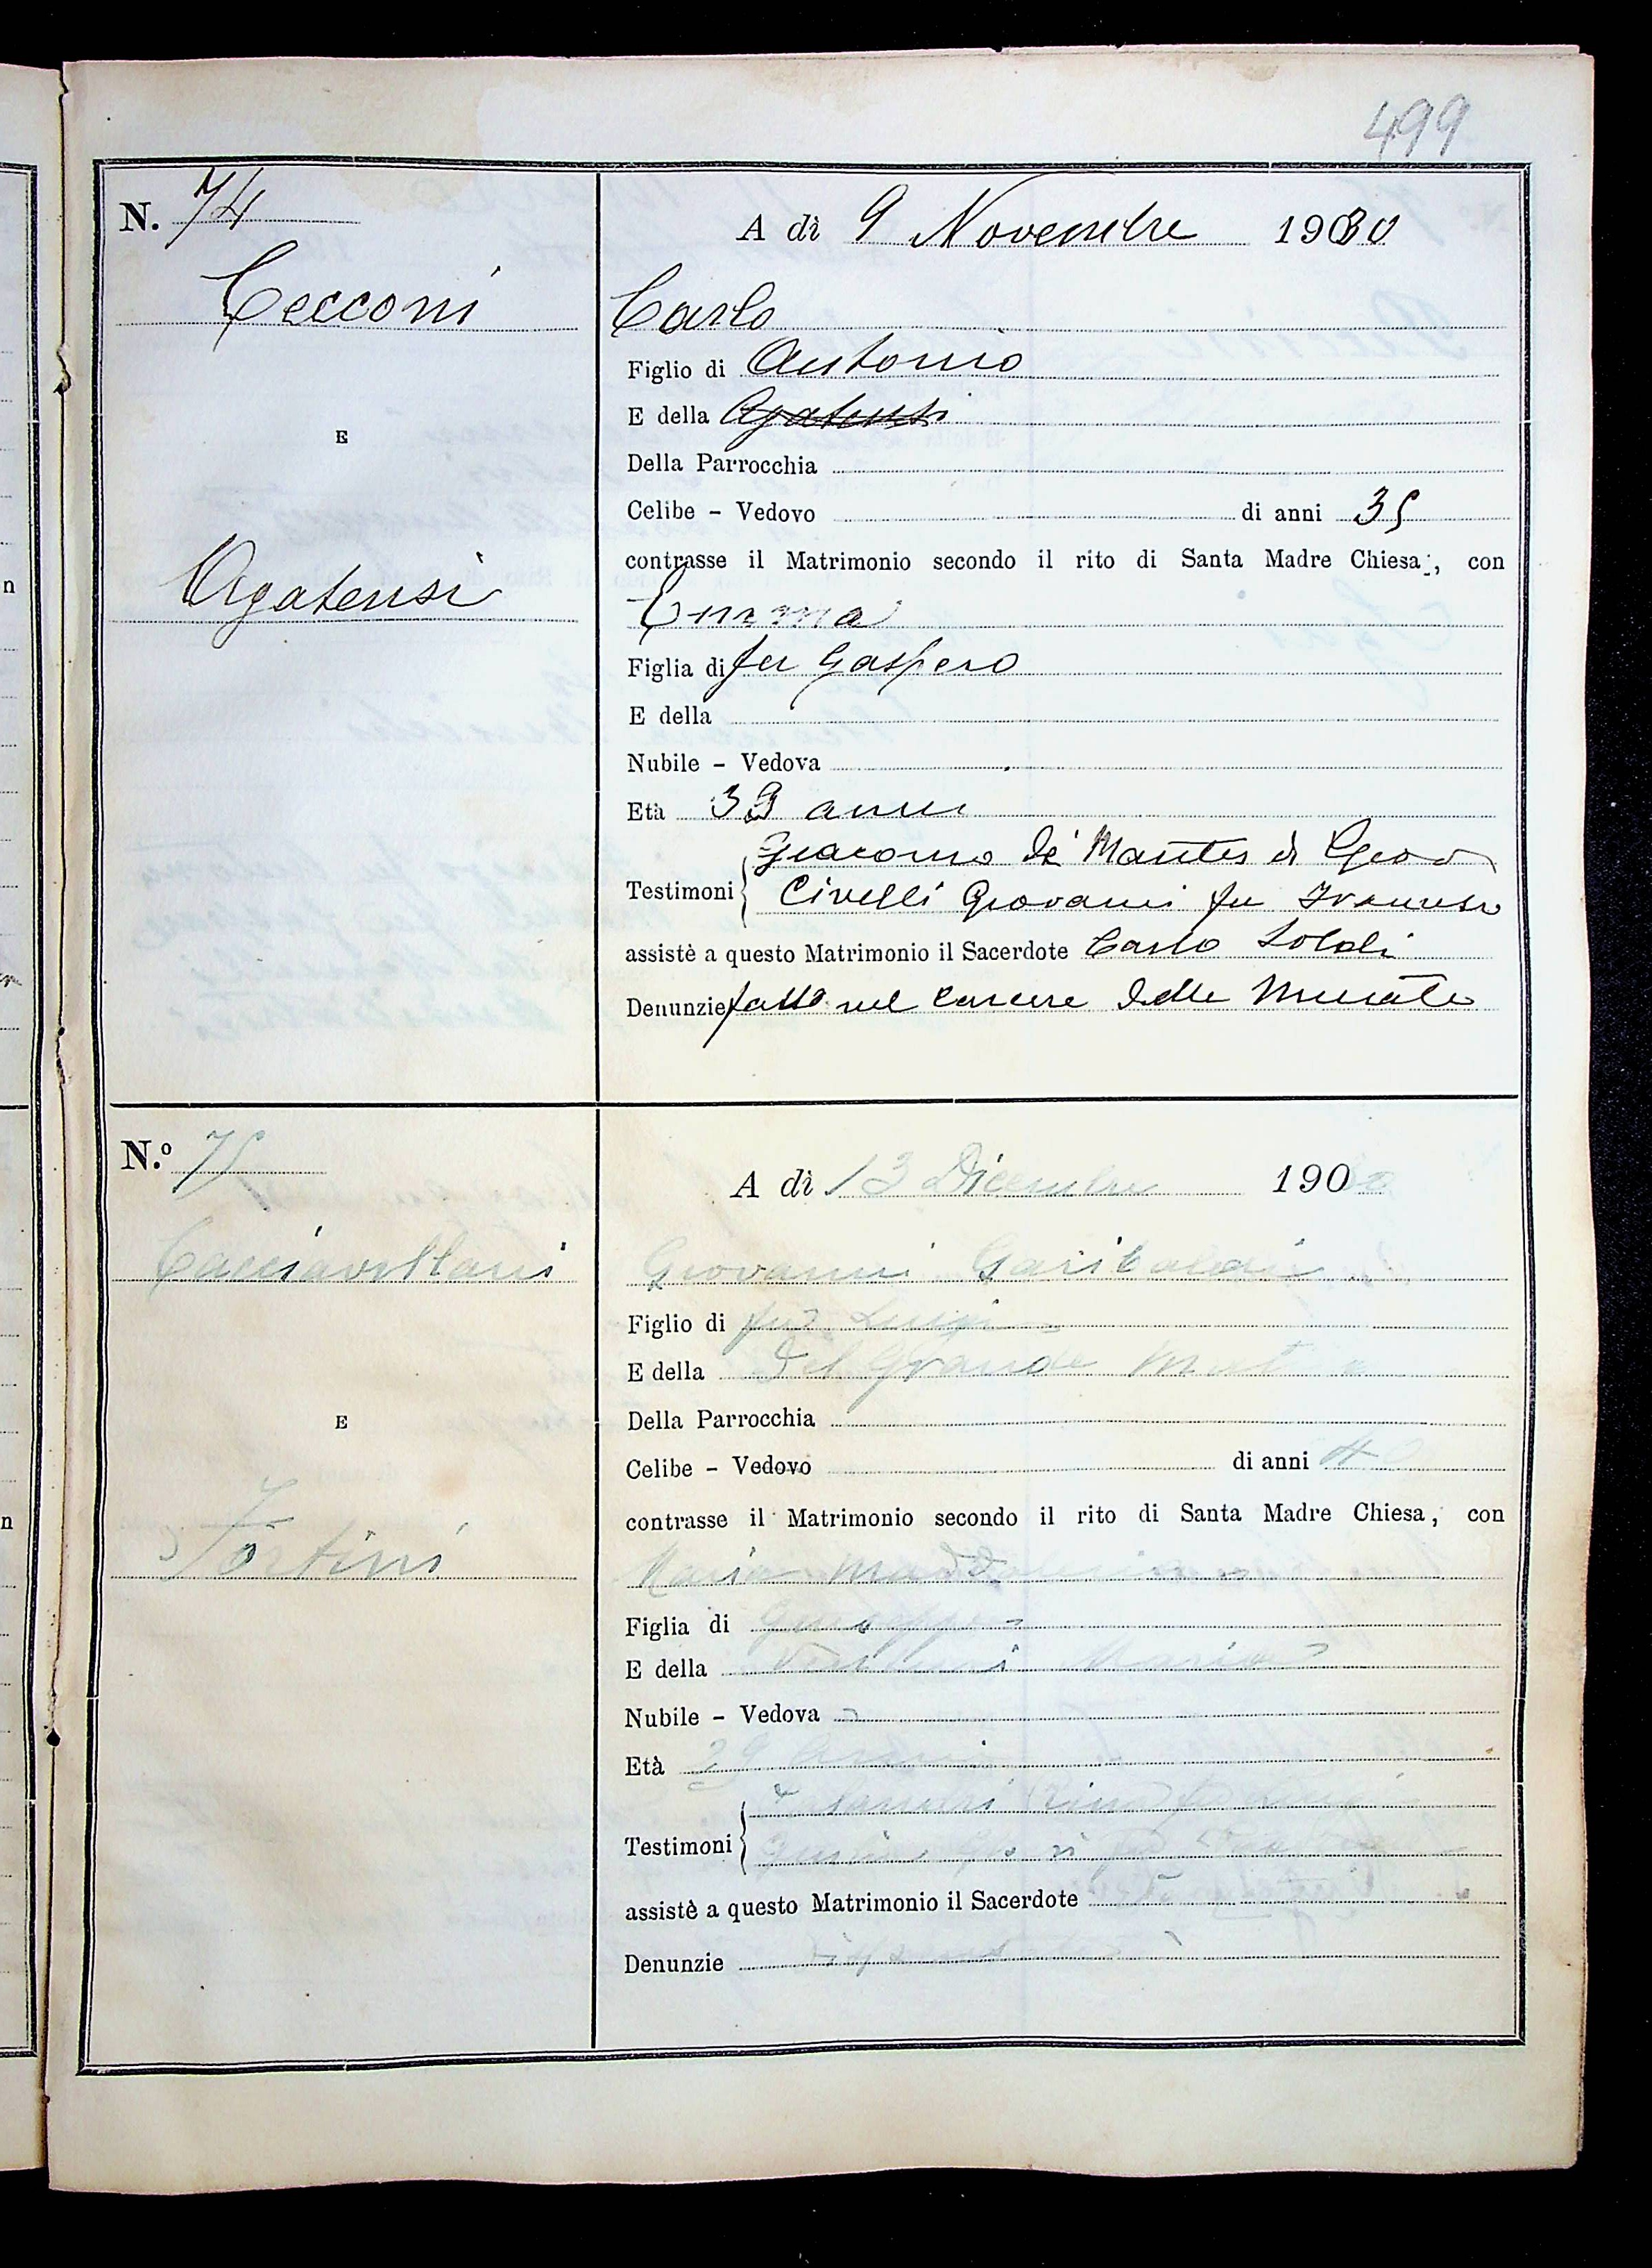 499
N. 74
A dì 9 Novembre 1930
Cecconi
Carlo
Figlio di Antonio
E della Agatensi
E
Della Parrocchia
Celibe - Vedovo di anni 35
contrasse il Matrimonio secondo il rito di Santa Madre Chiesa, con
Agatensi
Emma
Figlia di fu Gaspero
E della
Nubile - Vedova
Età 39 anni
Giacomo De Mantes di Giov
Testimoni
Civelli Giovanni fu
assistè a questo Matrimonio il Sacerdote Carlo Soldi
Denunzie fatto nel Carcere delle Murate
N.º 75
A dì 13 Dicembre 190
Cacciavillani
Giovanni Garibaldi
Figlio di fu Luigi
E della Del Grande
E
Della Parrocchia
Celibe - Vedovo di anni 40
contrasse il Matrimonio secondo il rito di Santa Madre Chiesa, con
Fortini
Maria Maddalena
Figlia di Giuseppe
E della Maria
Nubile - Vedova
Età 29 anni
Testimoni
assistè a questo Matrimonio il Sacerdote
Denunzie